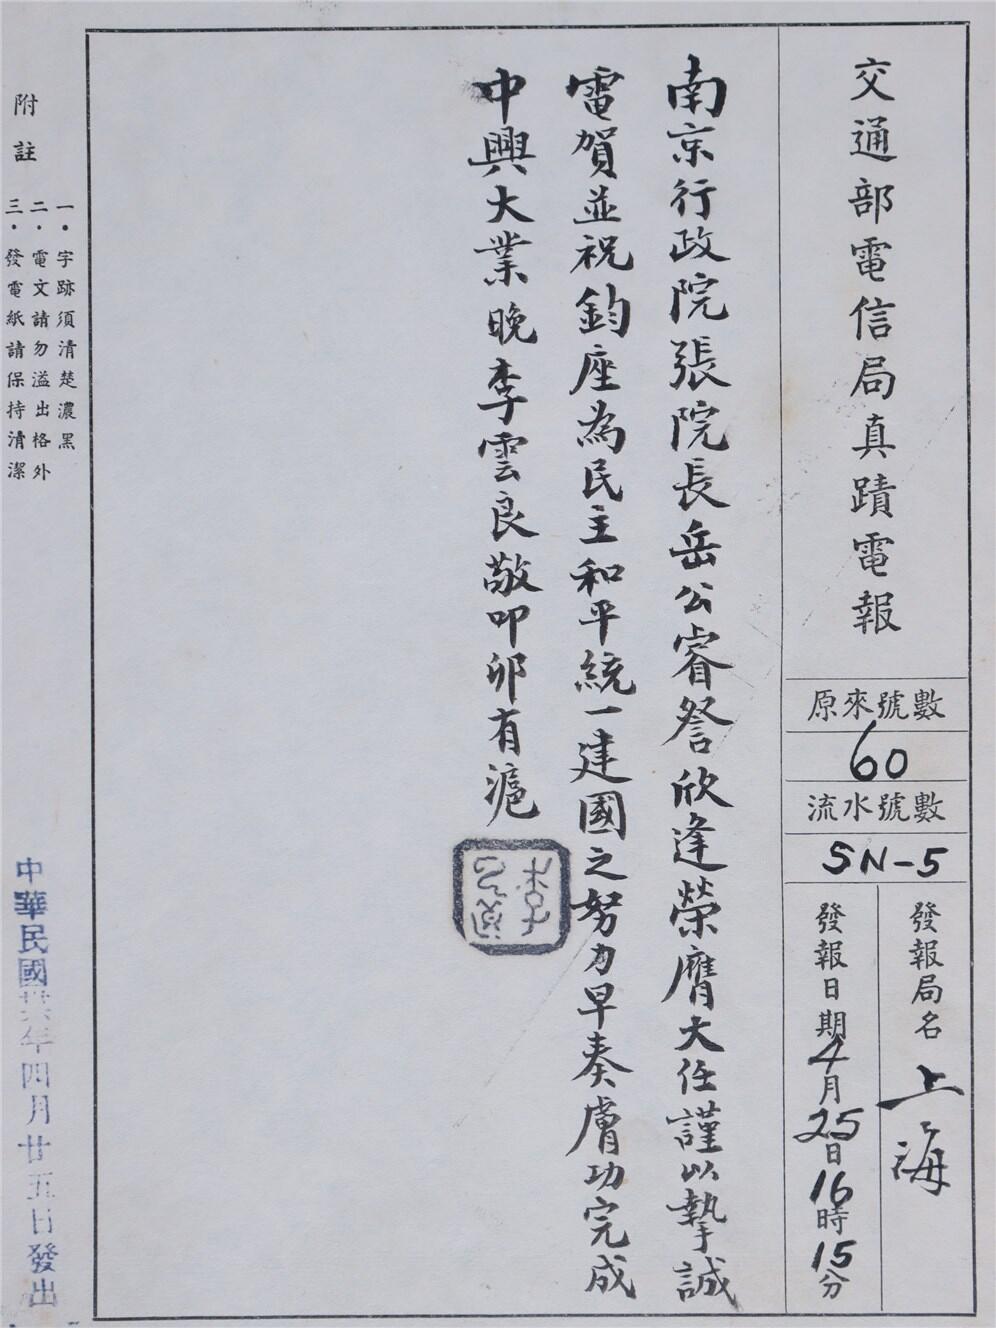 交通部電信局真蹟電報
原來號數
60
流水號數
SN-5
發報局名 上海
發報日期 4月25日16時15分
南京行政院張院長岳公睿詧欣逢榮膺大任謹以摯誠
電賀並祝鈞座為民主和平統一建國之努力早奏膚功完成
中興大業晚李雲良敬叩卯有滬
附註
一．字跡須清楚濃黑
二．電文請勿溢出格外
三．發電紙請保持清潔
中華民國卅六年四月廿五日發出